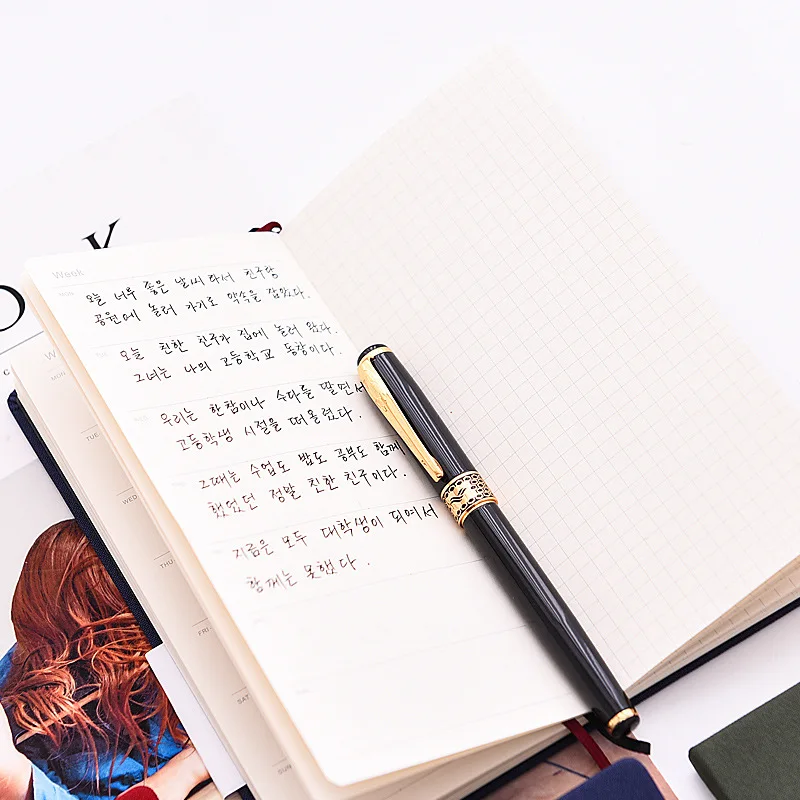 Week
MON
오늘 너무 좋은 날씨 라서 친구랑
공원에 놀러 가기로 약속을 잡았다.
오늘 친한 친구가 집에 놀러 왔다.
그녀는 나의 고등학교 동창이다.
우리는 한참이나 수다를 떨면서
고등학생 시절을 떠올렸다.
그때는 수업도 밥도 공부도 함께
했었던 정말 친한 친구이다.
지금은 모두 대학생이 되어서
함께는 못했다.
W
MON
TUE
WED
THU
FRI
SAT
SUN